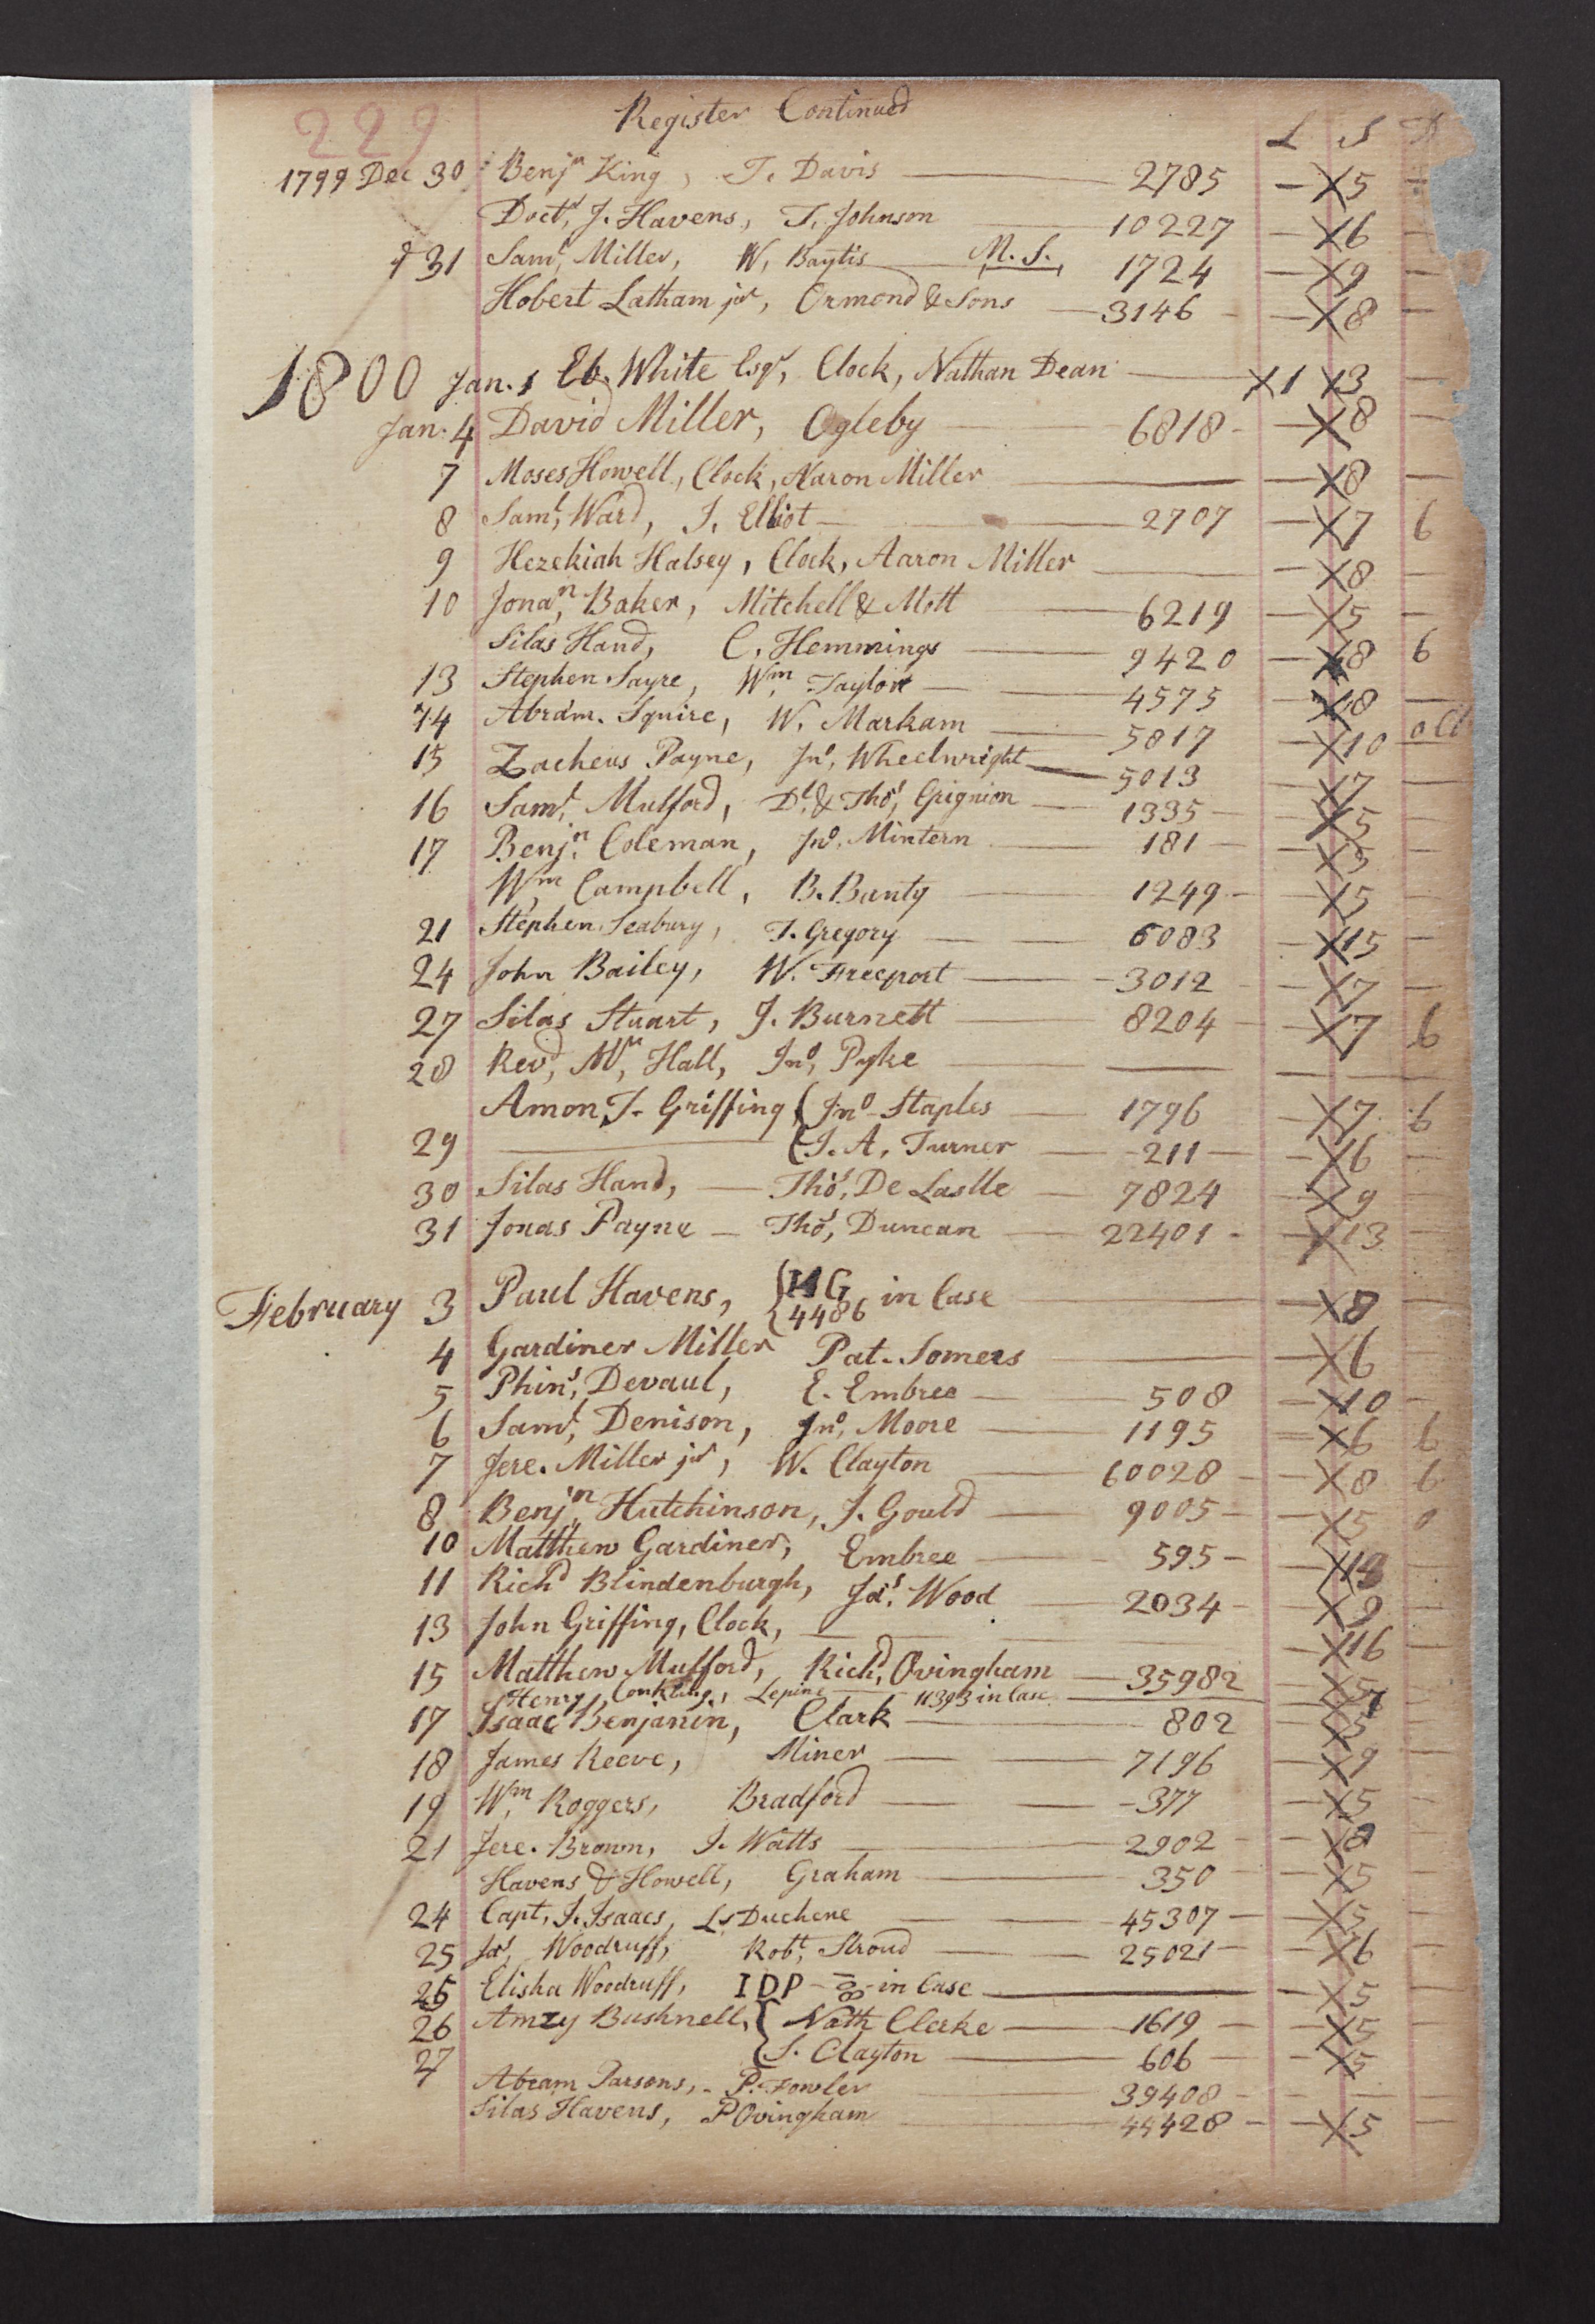 229
Register Continued
L S D
1799 Dec 30 Benjn King, T. Davis — 2785 — X5 —
Doctr, J. Havens, T. Johnson — 10227 — X6 —
31 Saml, Miller, W, Baytis M. S. 1724 — X9 —
Hobert Latham jur, Ormond & Sons — 3146 — X8 —
1800 Jan. 1 Eb. White Esqr, Clock, Nathan Dean — X1 X3 —
Jan. 4 David Miller, Ogleby — 6818 — X8 —
7 Moses Howell, Clock, Aaron Miller — X8 —
8 Saml, Ward, J. Elliot — 2707 — X7 6
9 Hezekiah Halsey, Clock, Aaron Miller — X8 —
10 Jonan, Baker, Mitchell & Mott — 6219 — X5 —
Silas Hand, C. Hemmings — 9420 — X8 6
13 Stephen Sayre, Wm, Taylor — 4575 — X8 —
14 Abram. Squire, W. Markam — 5817 — X10
15 Zacheus Payne, Jno, Wheelwright — 5013 — X7 —
16 Saml, Mulford, Dl. & Thos, Grignion — 1335 — X5 —
17 Benjn. Coleman, Jno. Mintern — 181 — X5 —
Wm, Campbell, B. Banty — 1249 — X5 —
21 Stephen Seabury, T. Gregory — 6083 — X15 —
24 John Bailey, W. Freeport — 3012 — X7 —
27 Silas Stuart, J. Burnett — 8204 — X7 6
28 Revd, Mr, Hall, Jno, Pyke —
Amon T. Griffing { Jno Staples — 1796 — X7 6
29 — { J. A, Turner — 211 — X6 —
30 Silas Hand, — Thos, De Laslle — 7824 — X9 —
31 Jonas Payne — Thos, Duncan — 22401 — X13 —
February 3 Paul Havens, { HG 4486 in Case — X8 —
4 Gardiner Miller Pat. Somers — X6 —
5 Phins, Devaul, E. Embree — 508 — X10 —
6 Saml, Denison, Jno, Moore — 1195 — X6 6
7 Jere. Miller jur, W. Clayton — 60028 — X8 6
8 Benjn, Hutchinson, J. Gould — 9005 — X5 0
10 Matthew Gardiner, Embree — 595 — X13 —
11 Richd Blindenburgh, Jas. Wood — 2034 — X9 —
13 John Griffing, Clock, — X16 —
15 Matthew Mulford, Richd, Ovingham — 35982 — X5 —
Henry Conkling, Lepine — 11393 in Case — X7
17 Isaac Benjamin, Clark — 802 — X5 —
18 James Reeve, Miner — 7196 — X9 —
19 Wm, Roggers, Bradford — 377 — X5 —
21 Jere. Brown, J. Watts — 2902 — X8 —
Havens & Howell, Graham — 350 — X5 —
24 Capt, J. Isaacs, Ls Duchene — 45307 — X5 —
25 Jas, Woodruff, Robt, Stroud — 25021 — X6 —
25 Elisha Woodruff, IDP — in Case — X5 —
26 Amzy Bushnell, { Nath Clerke — 1619 — X5 —
27 { S. Clayton — 606 — X5 —
Abram Parsons, - P. Fowler — 39408 —
Silas Havens, P Ovingham — 44428 — X5 —